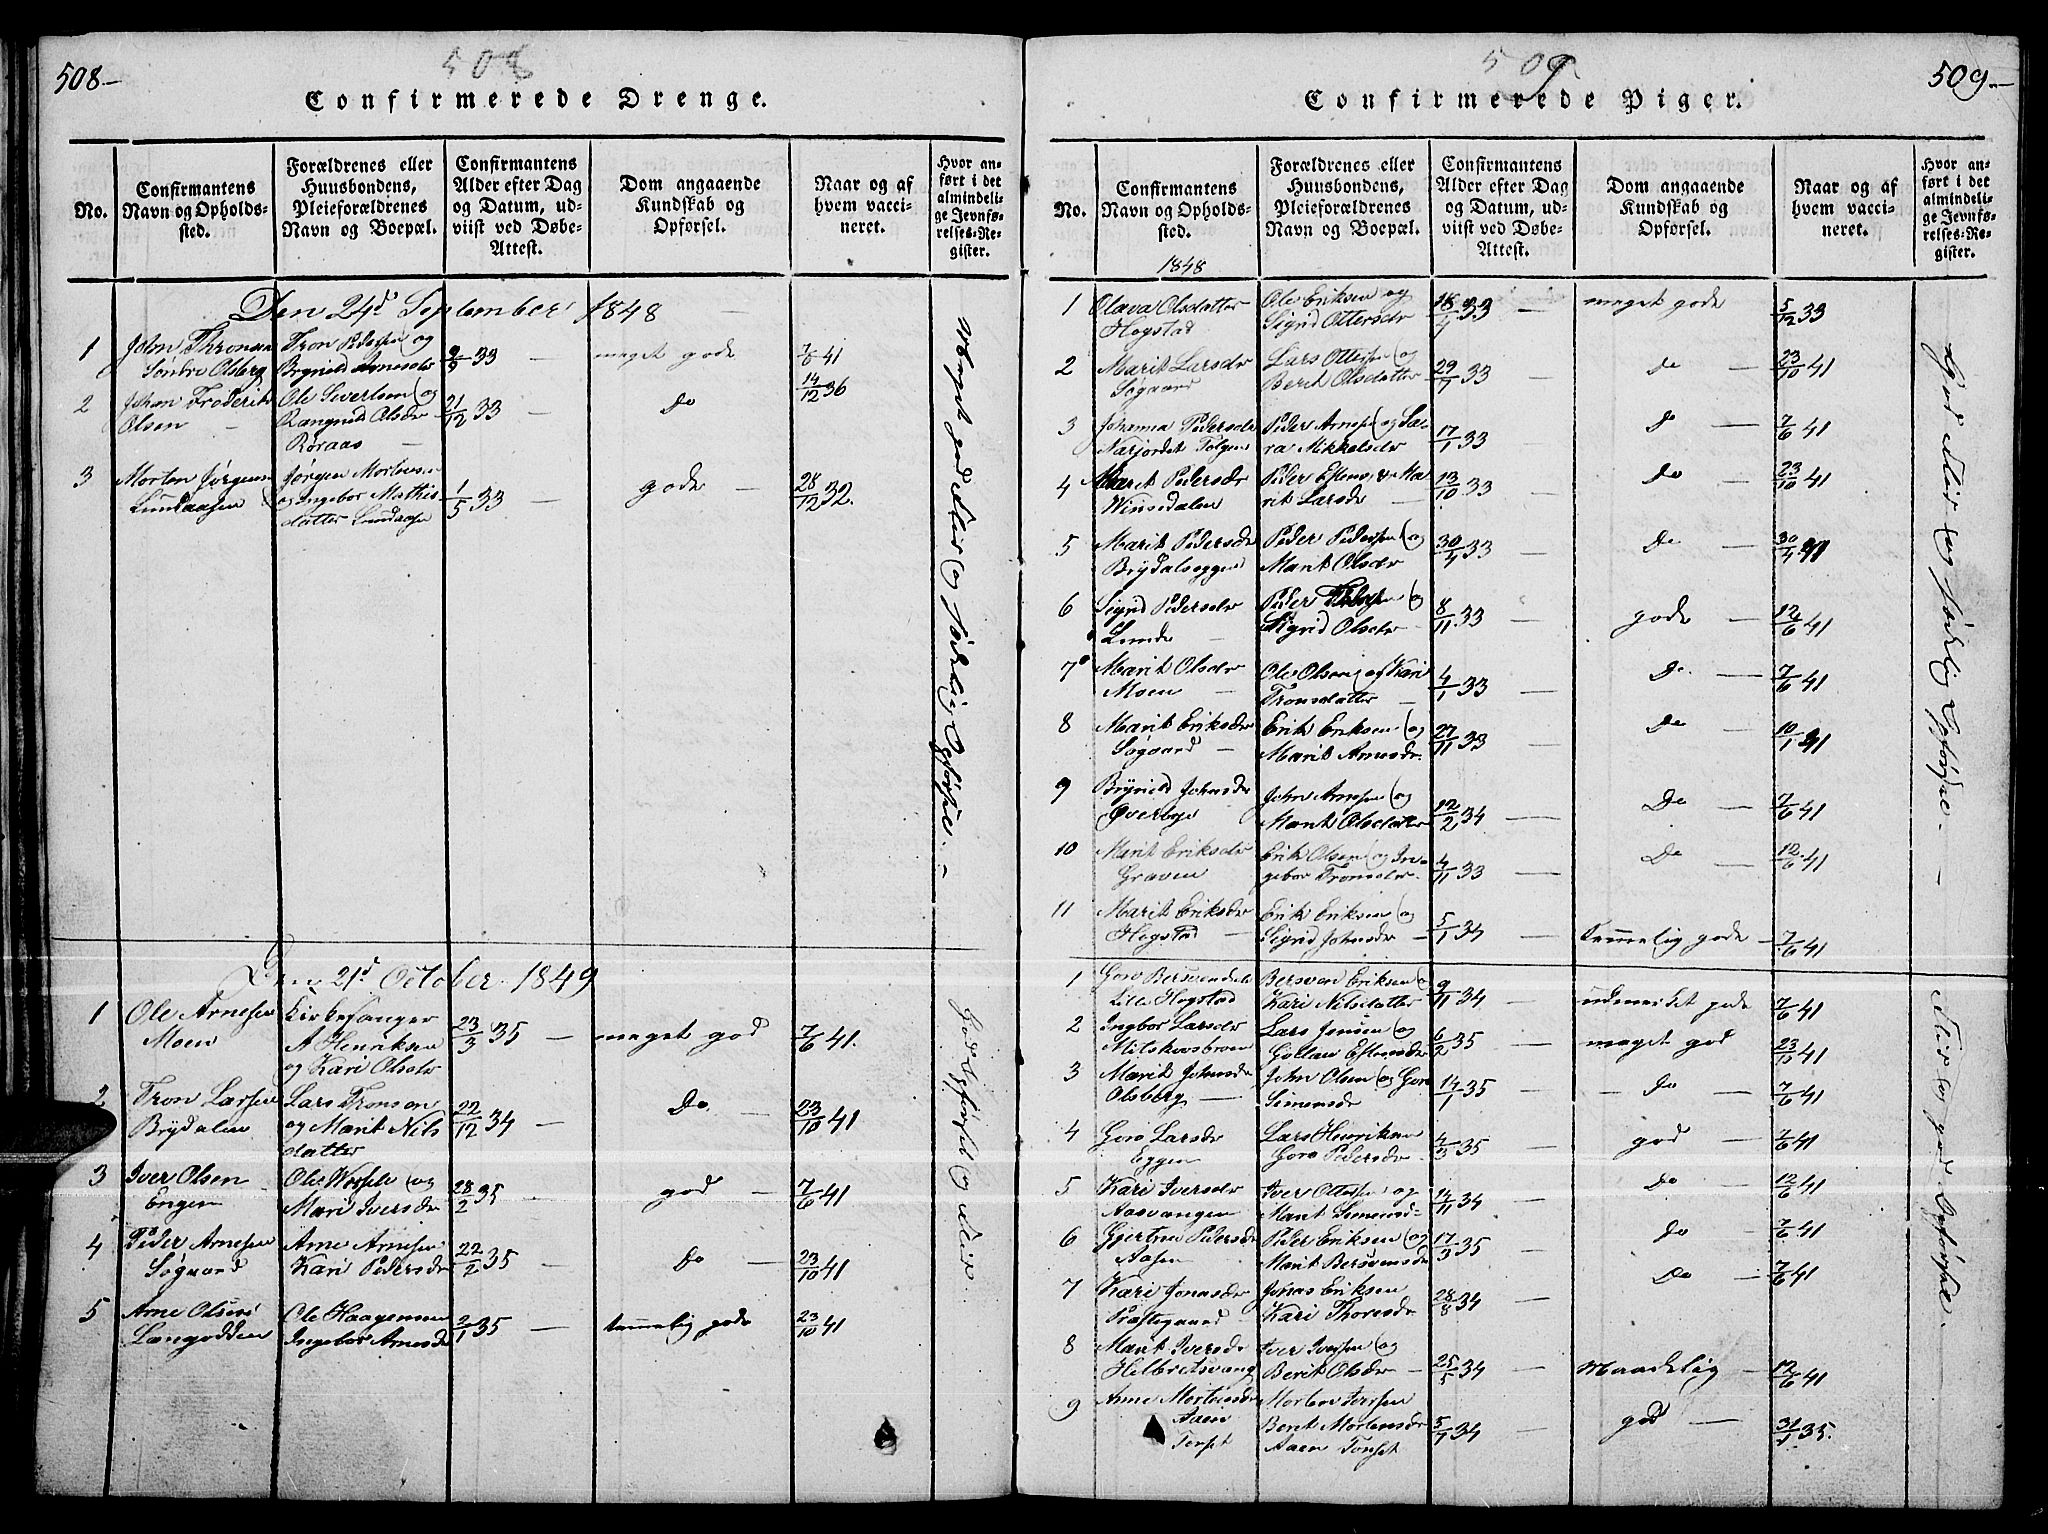 508-
508
Confirmerede Drenge.
No.
Confirmantens Navn og Opholdssted.
Forældrenes eller Huusbondens, Pleieforældrenes Navn og Boepæl.
Confirmantens Alder efter Dag og Datum, udviist ved Døbe-Attest.
Dom angaaende Kundskab og Opførsel.
Naar og af hvem vaccineret.
Hvor anført i det almindelige Jevnførelses-Register.
Den 24d September 1848
1 John Thronsen Tron Pedersen og 9/9 33 - meget gode 7/6 41
Søndre Olsberg Brynild Arnesdr
2 Johan Frederik Ole Sivertsen og 21/12 33 - Do 14/12 36
Olsen - Rangnild Olsdr
Røraas -
3 Morten Jørgensen Jørgen Mortensen 1/5 33 - gode - 28/12 32.
Lundaasen og Ingebor Mathis
datter Lundaasen
god Flid og Opførsel. -
Den 21d October 1849
1 Ole Arnesen Kirkesanger 23/3 35 - meget god 7/6 41.
Moen A Henriksen
og Kari Olsdr
2 Tron Larsen Lars Tronsen 22/12 34 - Do. - 23/10 41
Brydalen og Marit Nils
datter
3 Iver Olsen Ole og 28/2 35 - god - 7/6 41
Engen Mari Iversdr
4 Peder Arnesen Arne Arnesen 22/2 35 - Do - 23/10 41
Søgaard Kari Pedersdr
5 Arne Olsen Ole Haagensen 2/1 35 - temmelig gode 23/10 41
Langodden Ingebor Arnesdr
God Opførsel og Flid.
509
509.-
Confirmerede Piger.
No.
Confirmantens Navn og Opholdssted.
Forældrenes eller Huusbondens, Pleieforældrenes Navn og Boepæl.
Confirmantens Alder efter Dag og Datum, udviist ved Døbe-Attest.
Dom angaaende Kundskab og Opførsel.
Naar og af hvem vaccineret.
Hvor anført i det almindelige Jevnførelses-Register.
1848
1 Olava Olsdatter Ole Eriksen og 18/4 33 - meget gode 5/12 33
Hogstad Sigrid Ottersdr
2 Marit Larsdr Lars Ottesen og 29/7 33 - Do - 23/10 41
Søgaard Berit Olsdatter
3 Johanna Pedersdr Peder Arnesen og Sa- 17/1 33 - Do - 7/6 41
Narjordet Tolgen ra Mikkelsdr
4 Marit Pedersdr Peder Estens. & Ma 13/10 33 Do - 23/10 41
Winsedalen rit Larsdr -
5 Marit Pedersdr Peder Pedersen og 30/4 33 - Do - 30/4 41
Brydalseggen Marit Olsdr
6 Sigrid Pedersdr Peder og 8/11 33 - gode - 12/6 41
Lunde - Sigrid Olsdr
7 Marit Olsdr Ole Olsen og Kari 4/1 33 - Do. - 7/6 41
Moen - Tronsdatter -
8 Marit Eriksdr Erik Eriksen og 27/11 33 - Do - 10/1 41
Søgaard - Marit Arnesdr.
9 Brynild Johnsdr John Arnesen og 12/2 34 - Do - 7/6 41
Øverbye Marit Olsdatter
10 Marit Eriksdr Erik Olsen og In- 4/11 33 - Do - 12/6 41
Graven gebor Tronsdr.
11 Marit Eriksdr Erik Eriksen og 5/1 34 - temmelig gode - 7/6 41
Hogstad - Sigrid Johnsdr -
God Flid og Opførsel. -
1 Goro Bersvendsdr Bersven Eriksen o 9/11 34 - udmerket gode 7/6 41
Lille Hogstad Kari Nilsdatter
2 Ingbor Larsdr Lars Jensen og 6/2 35 - meget god 23/10 41
Milskovsbroen Estensdr
3 Marit Johnsdr John Olsen og Goro 14/1 35 - - Do - 7/6 41
Olsberg - Simensdr
4 Goro Larsdr Lars Henriksen 4/3 35 - god - 7/6 41
Eggen Goro Pedersdr -
5 Kari Iversdr Iver Ottesen og 14/11 34 - Do - 12/6 41
Aasvangen Marit Simensd-
6 Gjertrue Pedersdr Peder Eriksen og 17/3 35 - Do - 7/6 41
Aasen Marit Bersvensdr
7 Kari Jonasdr Jonas Eriksen 28/8 34 - Do - 7/6 41
Præstegaard Kari Thoresdr
8 Marit Iversdr Iver Iversen og 25/5 34 - Maadelig - 12/6 41
Helbretsvang Berit Olsdr -
9 Anne Mortensdr Morten Iversen 5/1 34 - god - 31/1 35.
Aaen Berit Mortensdr
Tonset Aaen Tonset
Flid og god Opførsel.